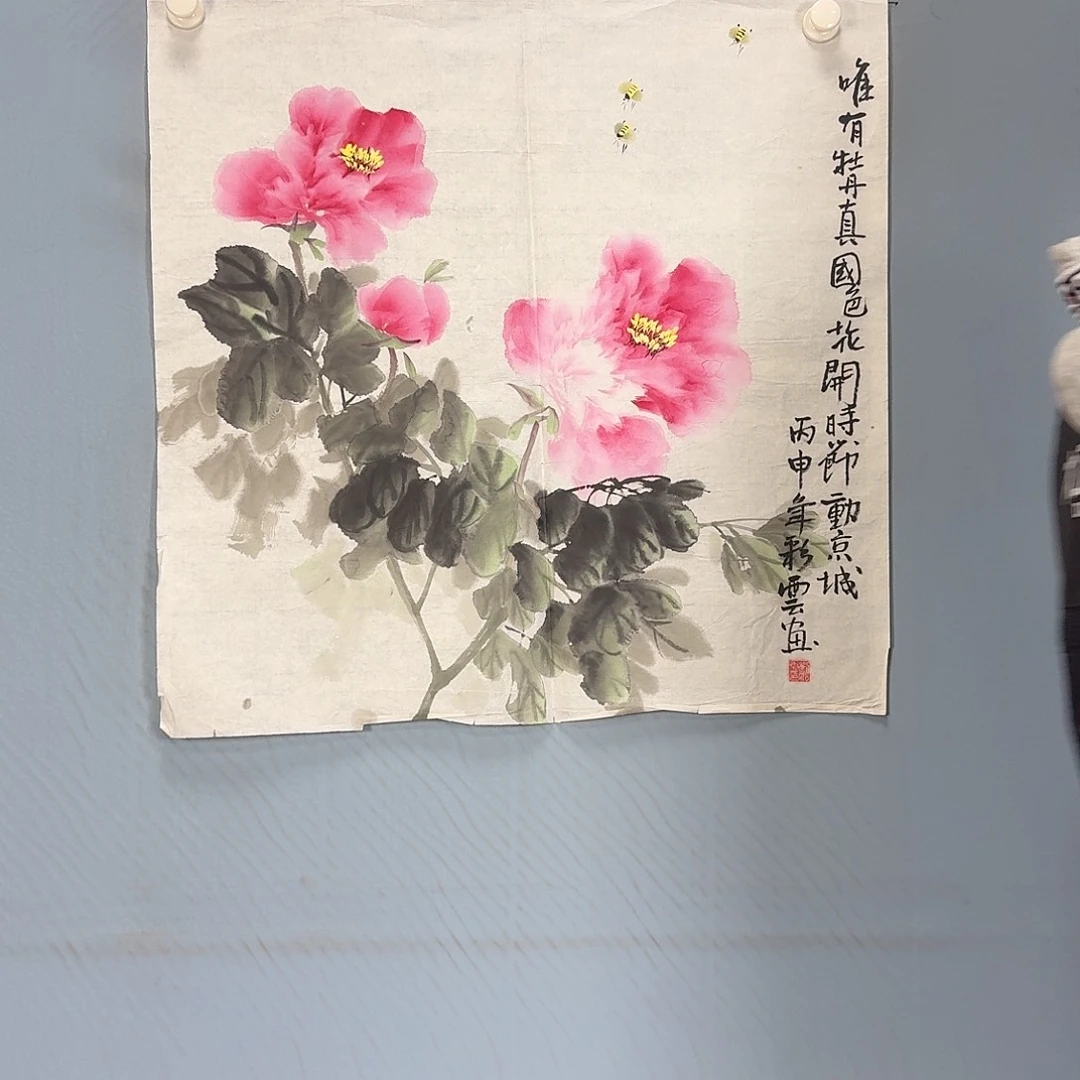 唯有牡丹真國色花開時節動京城
丙申年彩雲画